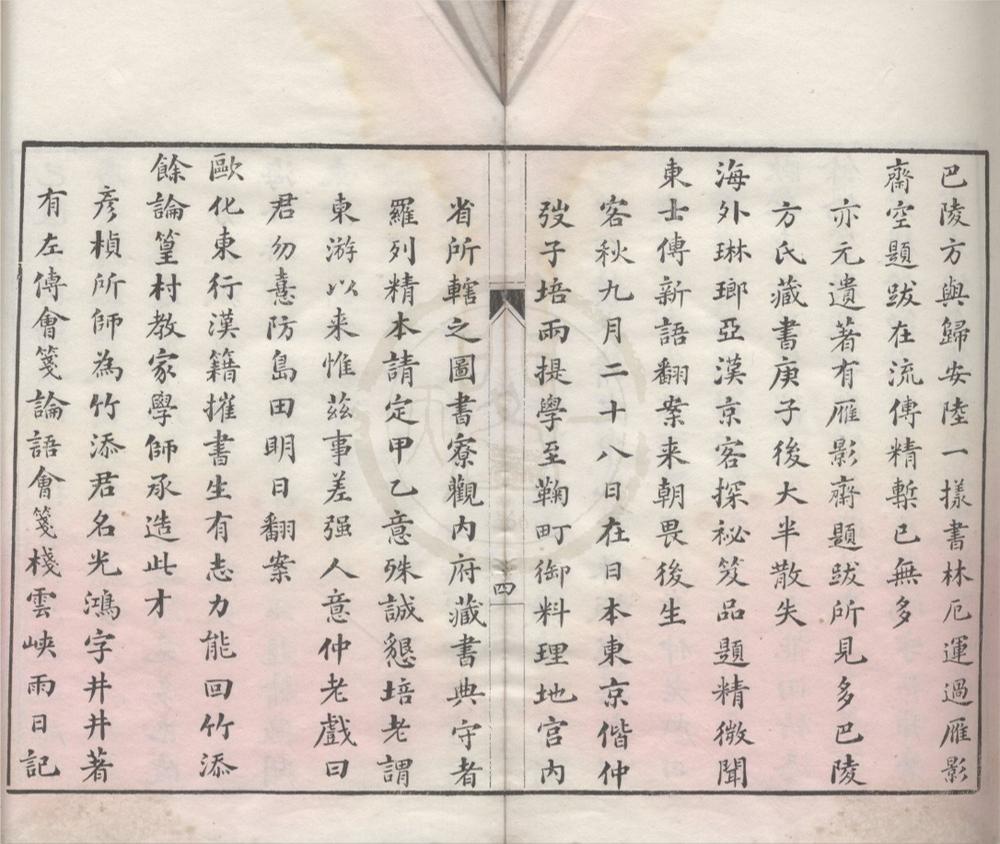 巴陵方與歸安陸一㨾書林厄運過雁影
齋空題跋在流傳精槧已無多
亦元遺著有雁影齋題跋所見多巴陵
方氏藏書庚子後大半散失
海外琳瑯亞漢京客探祕笈品題精微聞
東士傳新語翻案来朝畏後生
客秋九月二十八日在日本東京偕仲
弢子培兩提學至鞠町御料理地宫内
四
省所轄之圖書寮觀内府藏書典守者
羅列精本請定甲乙意殊誠懇培老謂
東游以来惟茲事差强人意仲老戲曰
君勿憙防島田明日翻案
歐化東行漢籍摧書生有志力能回竹添
餘論篁村教家學師承造此才
彥楨所師為竹添君名光鴻字井井著
有左傳會箋論語會箋棧雲峽雨日記